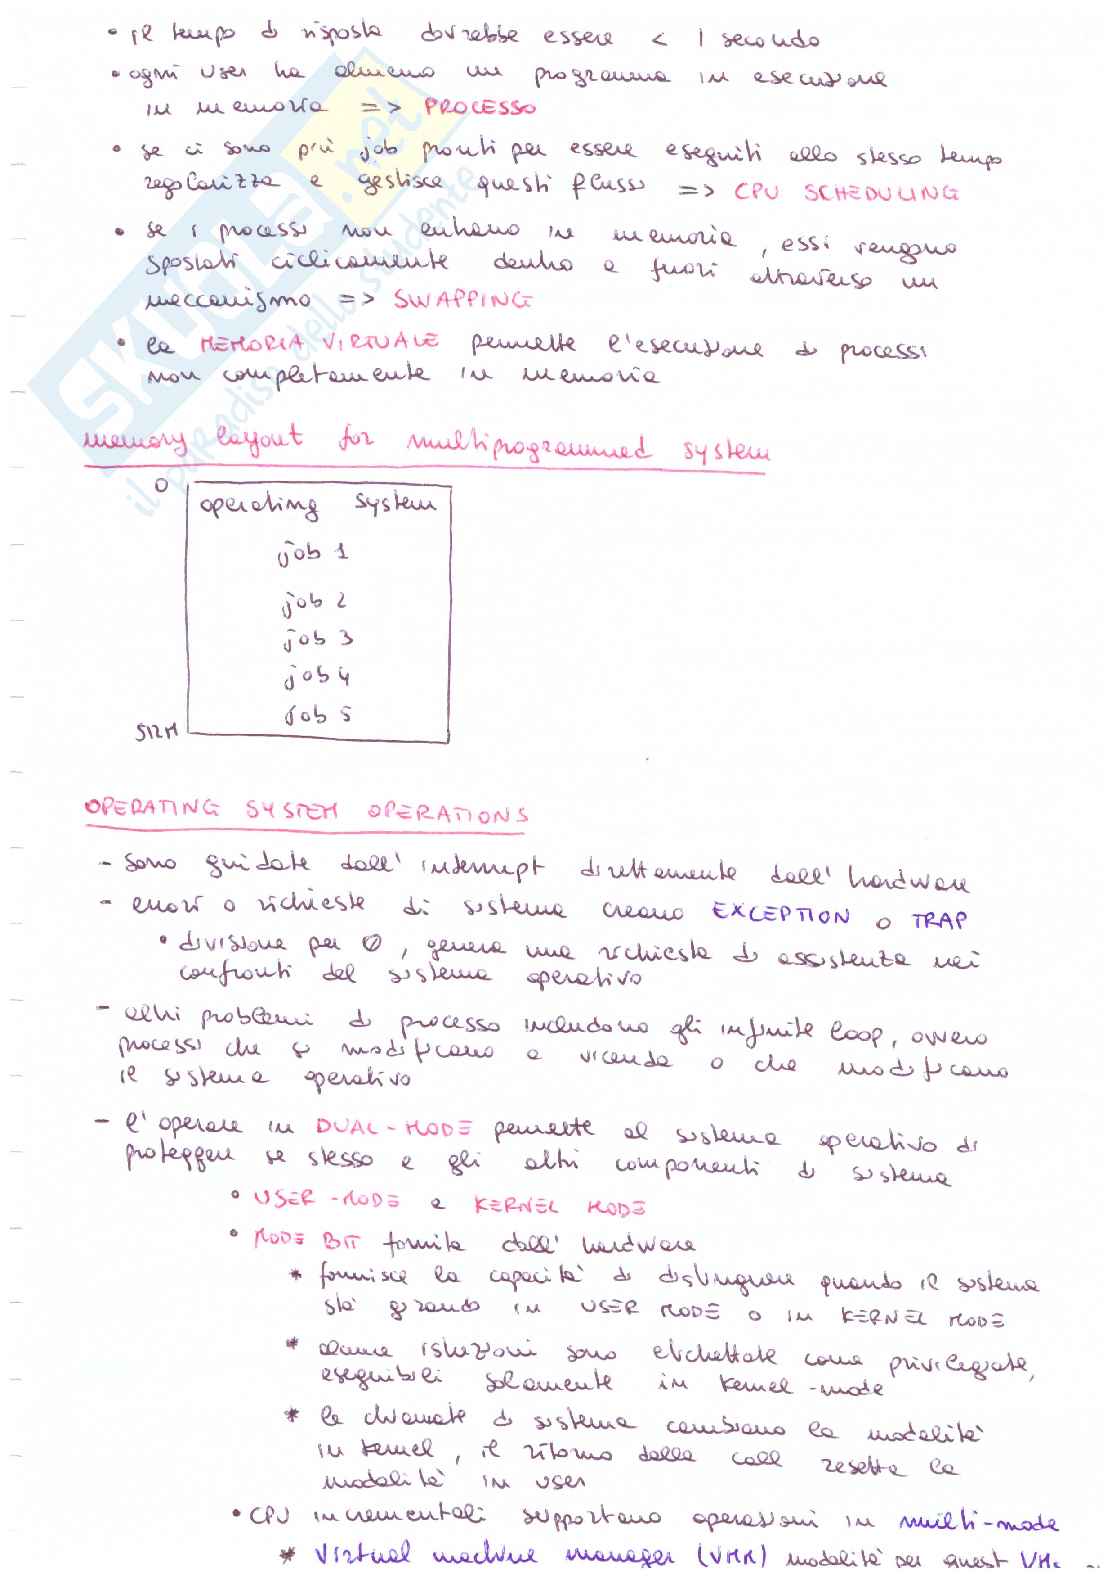 • il tempo di risposta dovrebbe essere < 1 secondo
• ogni user ha almeno un programma in esecuzione
in memoria => PROCESSO
• se ci sono più job pronti per essere eseguiti allo stesso tempo
regolarizza e gestisce questi flussi => CPU SCHEDULING
• se i processi non entrano in memoria, essi vengono
spostati ciclicamente dentro e fuori attraverso un
meccanismo => SWAPPING
• la MEMORIA VIRTUALE permette l'esecuzione di processi
non completamente in memoria
SKUOLA.net
il paradiso dello studente
memory layout for multiprogrammed system
0
operating system
job 1
job 2
job 3
job 4
job 5
512M
OPERATING SYSTEM OPERATIONS
- sono guidate dall'interrupt direttamente dall'hardware
- errori o richieste di sistema creano EXCEPTION o TRAP
• divisione per 0, genera una richiesta di assistenza nei
confronti del sistema operativo
- altri problemi di processo includono gli infinite loop, ovvero
processi che si modificano a vicenda o che modificano
il sistema operativo
- l'operare in DUAL-MODE permette al sistema operativo di
proteggere se stesso e gli altri componenti di sistema
• USER-MODE e KERNEL MODE
• MODE BIT fornita dall'hardware
* fornisce la capacità di distinguere quando il sistema
stà girando in USER MODE o in KERNEL MODE
* alcune istruzioni sono etichettate come privilegiate,
eseguibili solamente in kernel-mode
* le chiamate di sistema cambiano la modalità
in kernel, il ritorno dalla call resetta la
modalità in user
• CPU incrementali supportano operazioni in multi-mode
* virtual machine manager (VMM) modalità per guest VMs